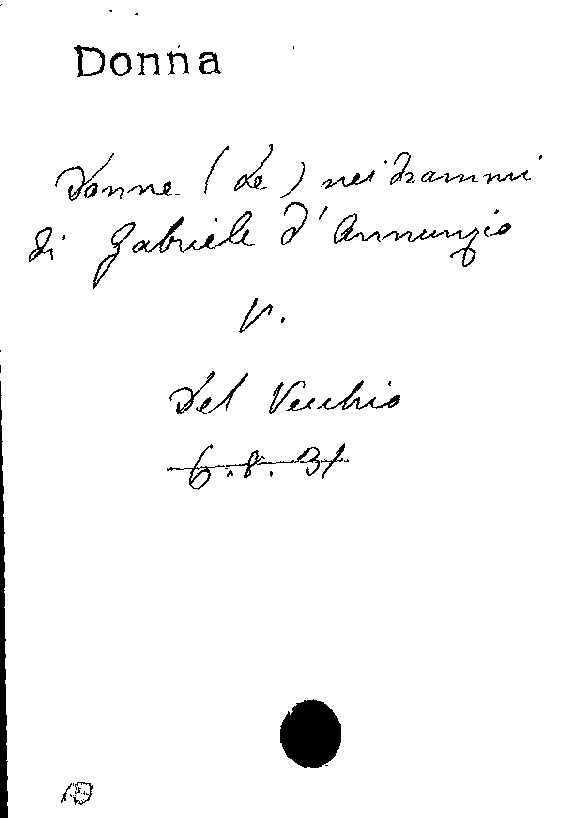 Donna
Donne (Le) nei drammi
di Gabriele d'Annunzio
V.
Del Vecchio
6.8.31